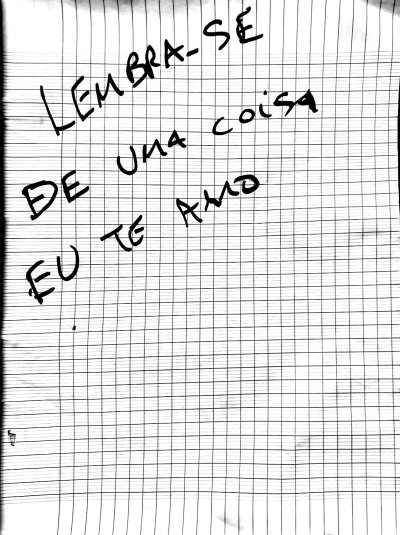 LEMBRA-SE
DE UMA COISA
EU TE AMO